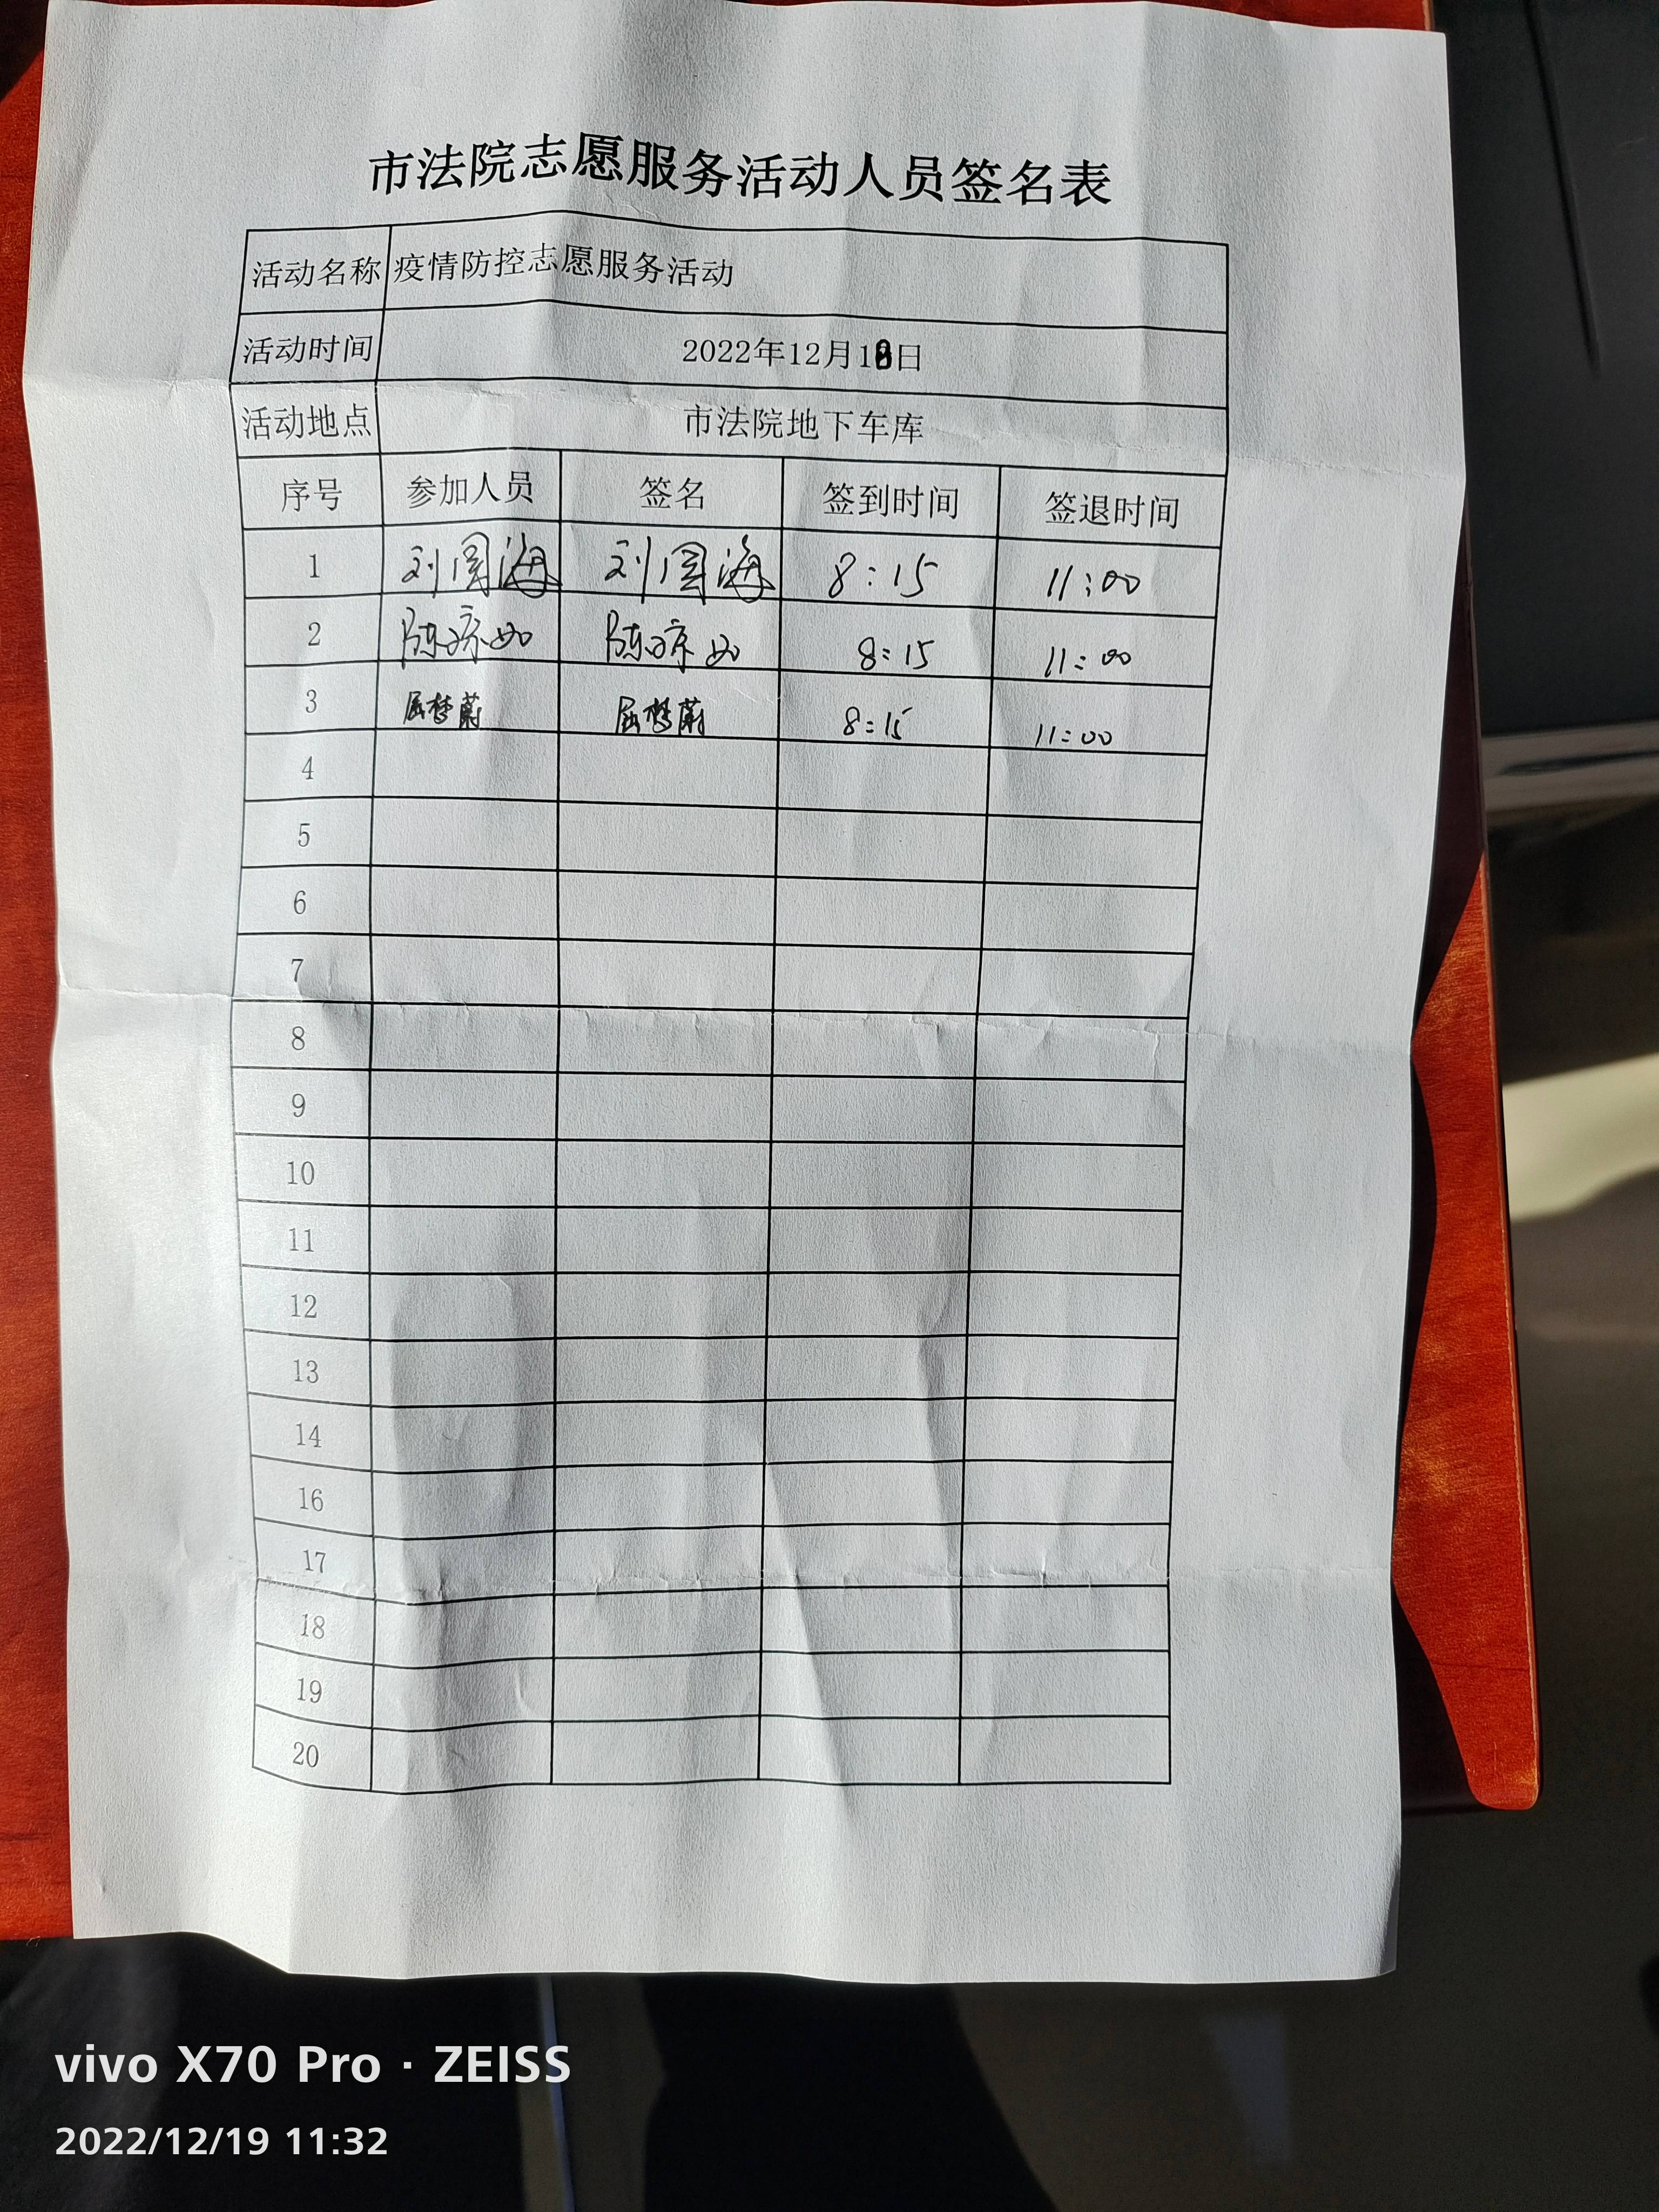 市法院志愿服务活动人员签名表
活动名称 疫情防控志愿服务活动
活动时间 2022年12月18日
活动地点 市法院地下车库
序号 参加人员 签名 签到时间 签退时间
1 刘国海 刘国海 8:15 11:00
2 陈琼如 陈琼如 8:15 11:00
3 屈梦蔚 屈梦蔚 8:15 11:00
4
5
6
7
8
9
10
11
12
13
14
16
17
18
19
20
vivo X70 Pro · ZEISS
2022/12/19 11:32